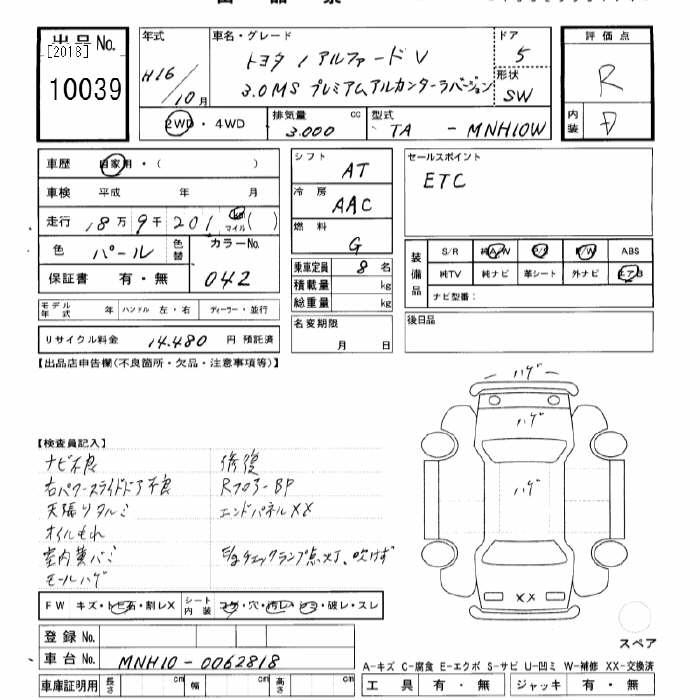 出品票
出品No.
[2013]
10039
年式
H16 / 10月
車名・グレード
トヨタ / アルファード V
3.0MS プレミアムアルカンターラバージョン
ドア
5
形状
SW
2WD・4WD
排気量
3.000 cc
型式
TA - MNH10W
評価点
R
内装
D
車歴 自家用・( )
車検 平成 年 月
走行 18万9千201 km マイル ( )
色 パール 色替
カラーNo.
042
保証書 有・無
モデル年式 年 ハンドル 左・右 ディーラー・並行
リサイクル料金 14.480 円 預託済
シフト
AT
冷房
AAC
燃料
G
乗車定員 8 名
積載量 kg
総重量 kg
名変期限
月 日
セールスポイント
ETC
装備品
S/R 純A/W P/S P/W ABS
純TV 純ナビ 革シート 外ナビ エアB
ナビ型番:
後日品
【出品店申告欄(不良箇所・欠品・注意事項等)】
【検査員記入】
ナビ不良
右パワースライドドア不良
天張りタルミ
オイルもれ
室内黄バミ
モールハゲ
修復
Rフロアー BP
エンドパネルXX
E/gチェックランプ点灯、吹けず
ハゲ
ハゲ
ハゲ
XX
スペア
FW キズ・トビ石・割レX
シート内装 コゲ・穴・汚レ・シミ・破レ・スレ
登録No.
車台No. MNH10-0062818
車庫証明用 長さ cm 幅 cm 高さ cm
A-キズ C-腐食 E-エクボ S-サビ U-凹ミ W-補修 XX-交換済
工具 有・無 ジャッキ 有・無